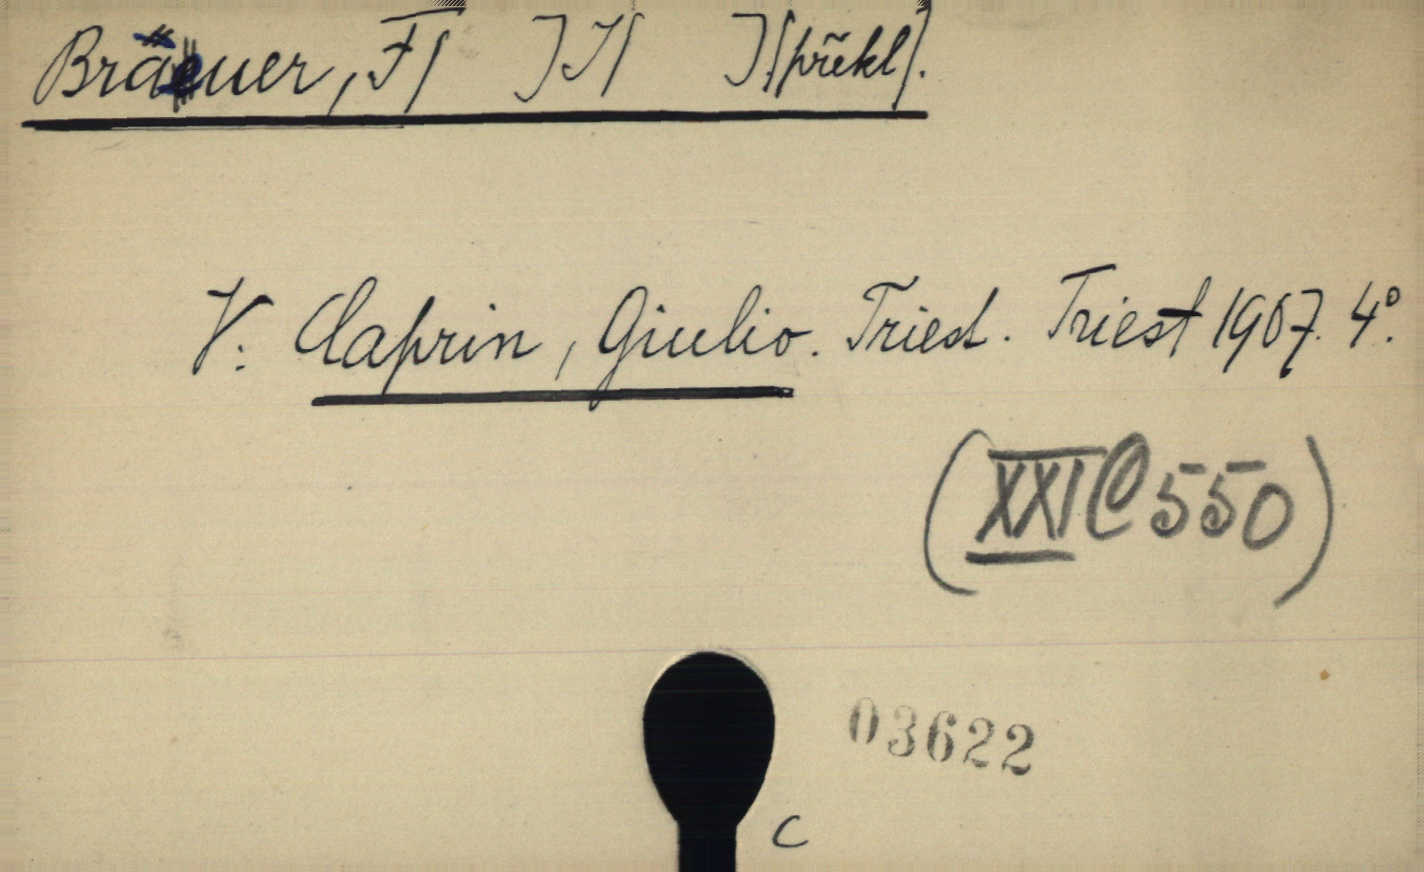 Bräuer, F[ ] I[ ] [překl].
V. Caprin, Giulio. Triest. Triest 1907. 4°.
(XXI C 550)
03622
C